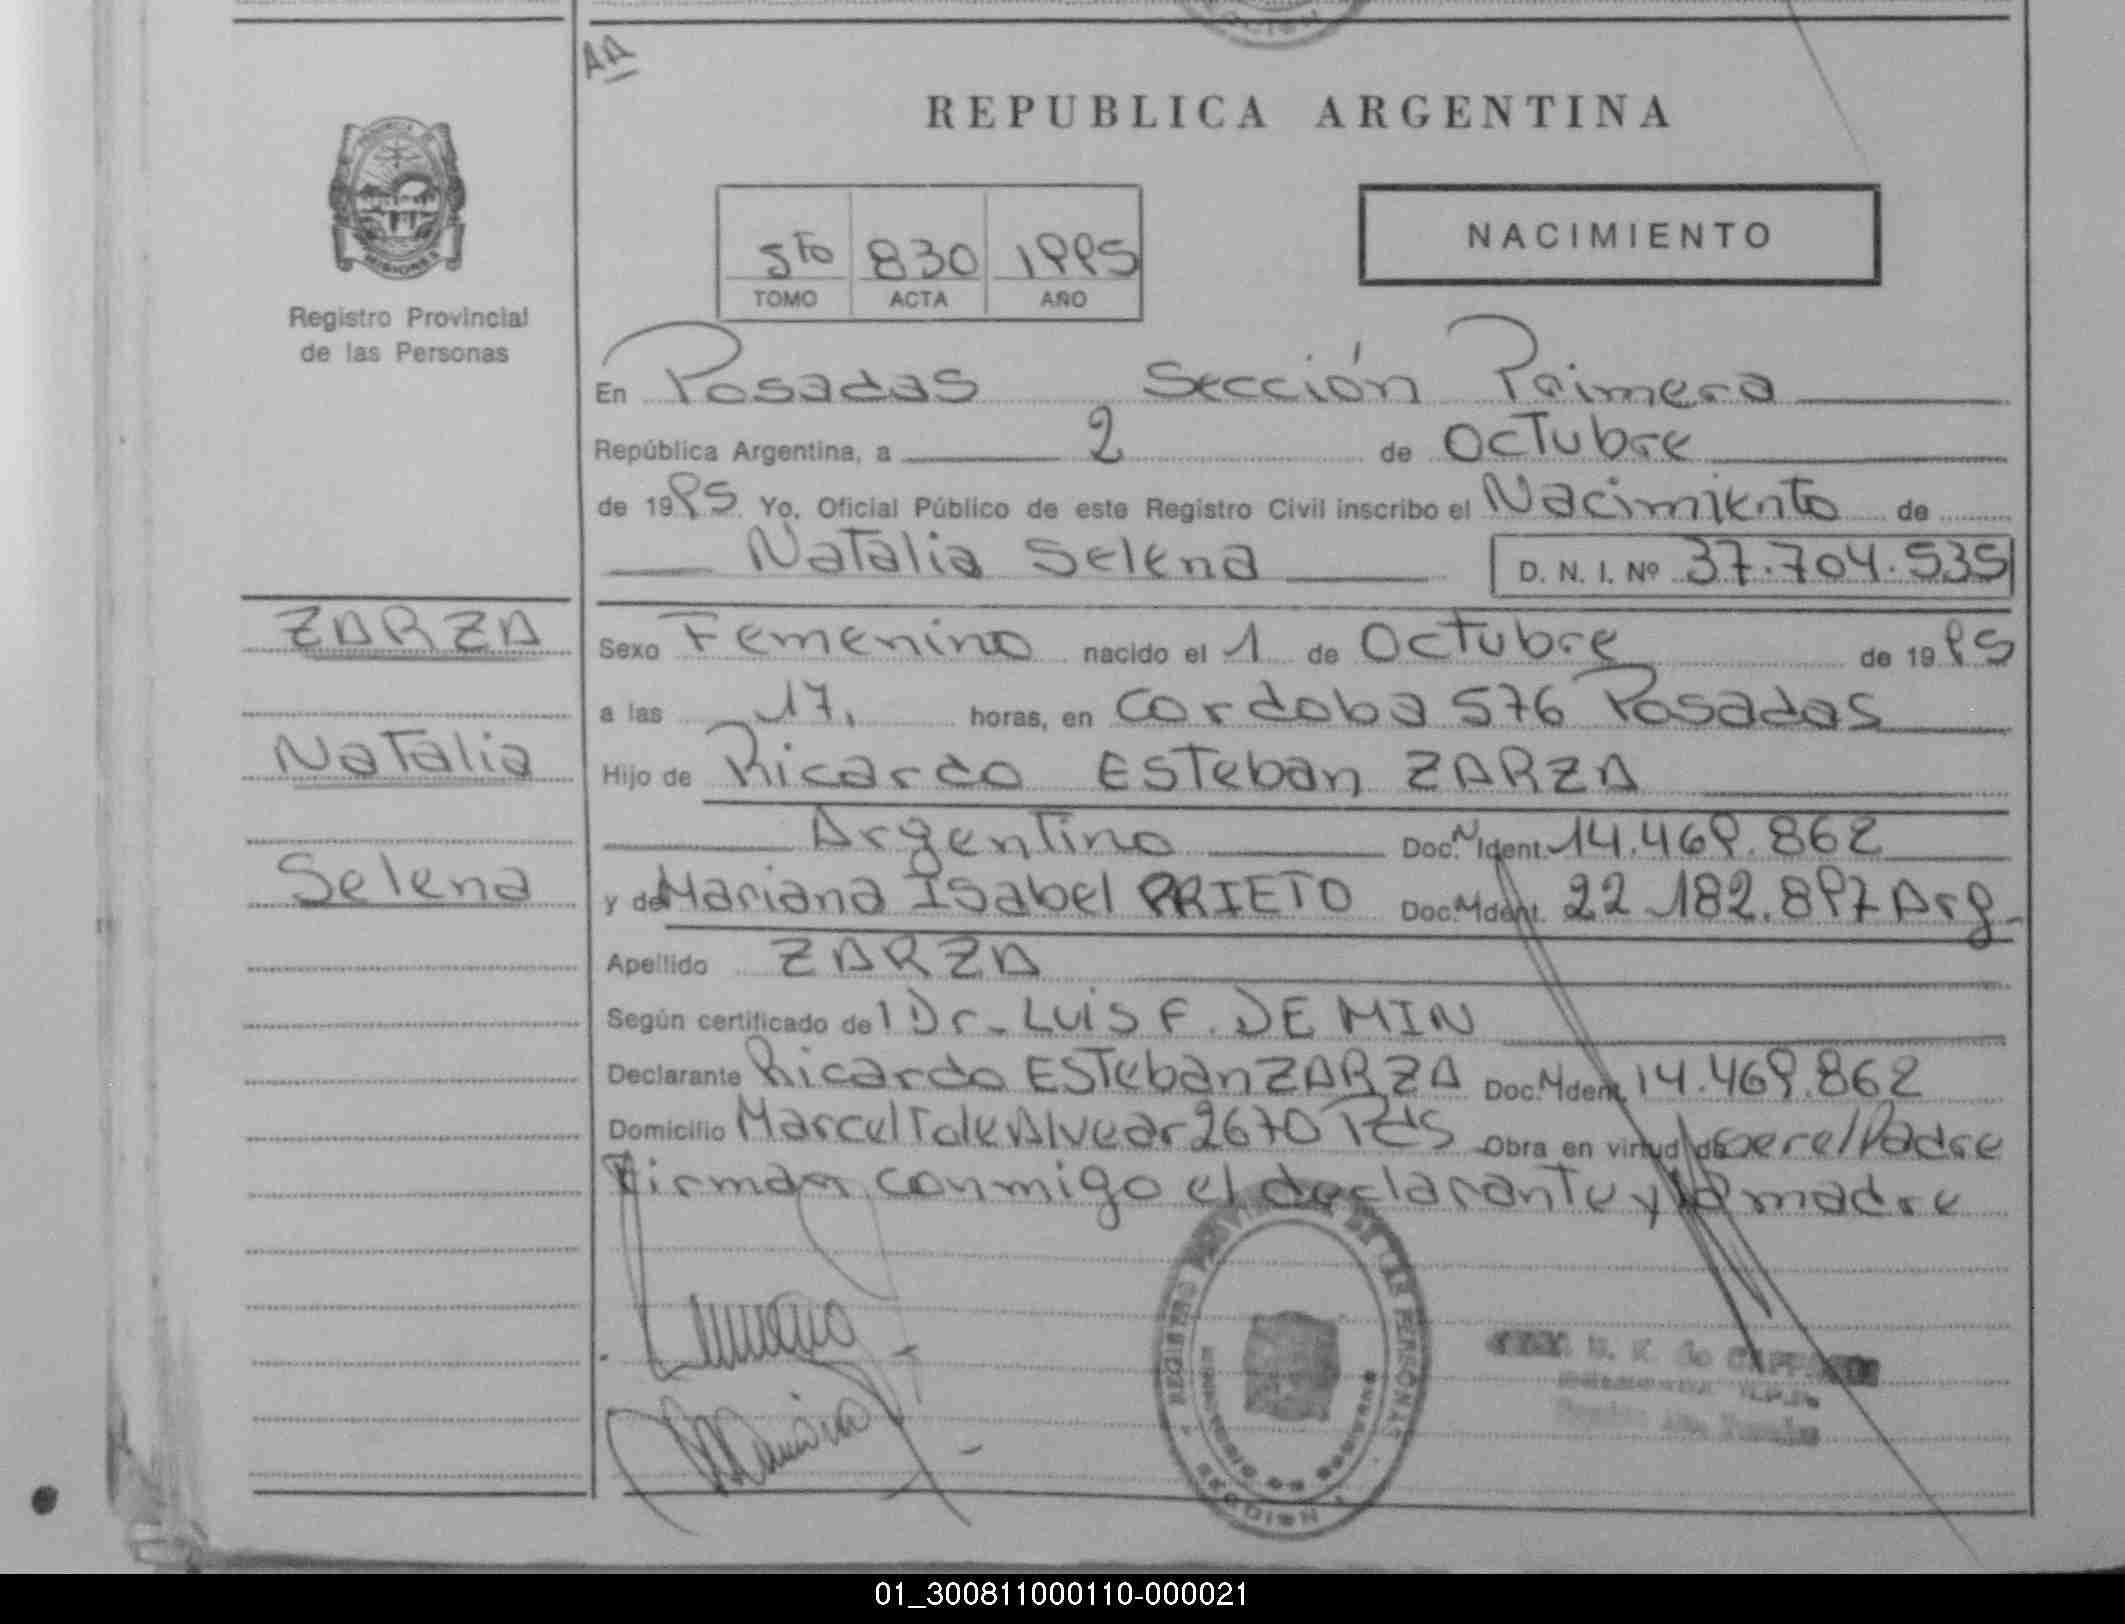 AA
REPUBLICA ARGENTINA
MISIONES
Registro Provincial
de las Personas
5to 830 1995
TOMO ACTA AÑO
NACIMIENTO
En Posadas Sección Primera
República Argentina, a 2 de Octubre
de 1995 Yo, Oficial Público de este Registro Civil inscribo el Nacimiento de
Natalia Selena D. N. I. Nº 37.704.535
ZARZA
Natalia
Selena
Sexo Femenino nacido el 1 de Octubre de 1995
a las 17, horas, en Cordoba 576 Posadas
Hijo de Ricardo Esteban ZARZA
Argentino Doc. N Ident. 14.469.862
y de Mariana Isabel PRIETO Doc. N Ident. 22.182.897 Arg.
Apellido ZARZA
Según certificado del Dr. Luis F. DE MIN
Declarante Ricardo Esteban ZARZA Doc. N Ident. 14.469.862
Domicilio Marcel T de Alvear 2670 Pds Obra en virtud de ser el Padre
Firman conmigo el declarante y la madre
REGISTRO PROVINCIAL DE LAS PERSONAS
MISIONES
01_300811000110-000021